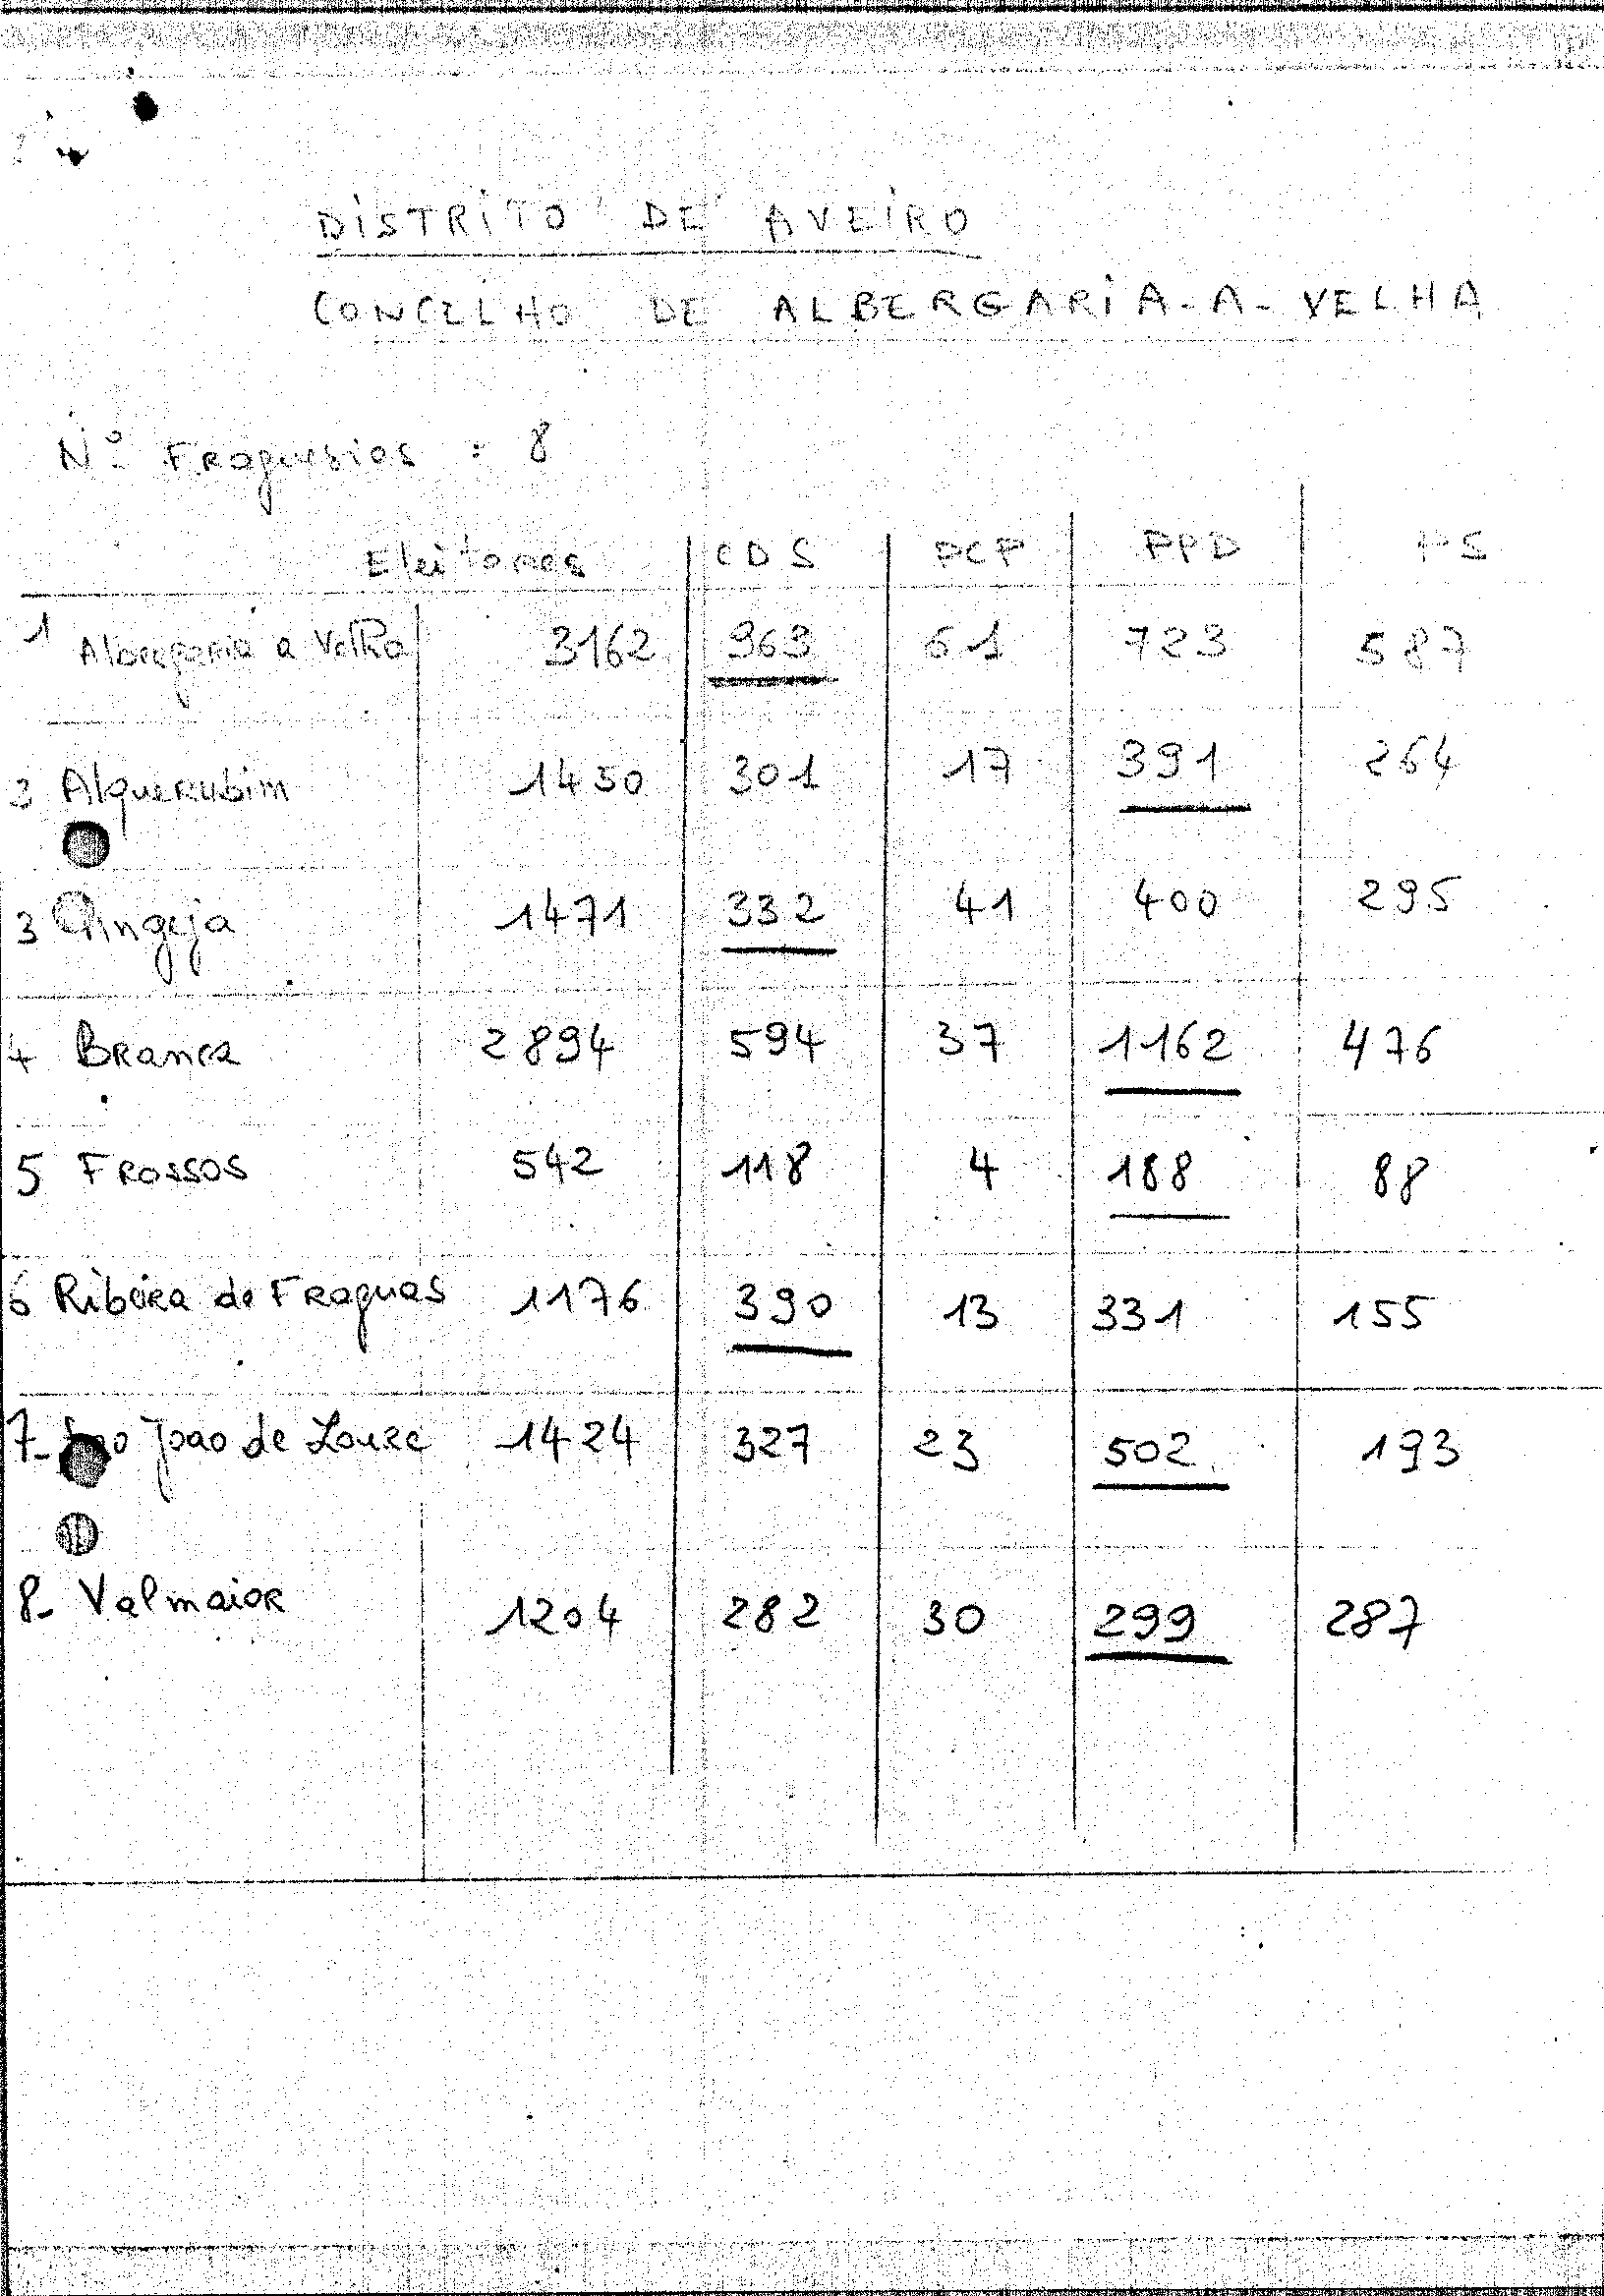 DISTRITO DE AVEIRO
CONCELHO DE ALBERGARIA-A-VELHA
Nº Freguesias : 8
Eleitores CDS PCP PPD PS
1 Albergaria a Velha 3162 963 61 723 587
3 Alquerubim 1450 301 17 391 264
3 Angeja 1471 332 41 400 295
4 Branca 2894 594 37 1162 476
5 Frossos 542 118 4 188 88
6 Ribeira de Fraguas 1176 390 13 331 155
7- Sao Joao de Loure 1424 327 23 502 193
8- Valmaior 1204 282 30 299 287